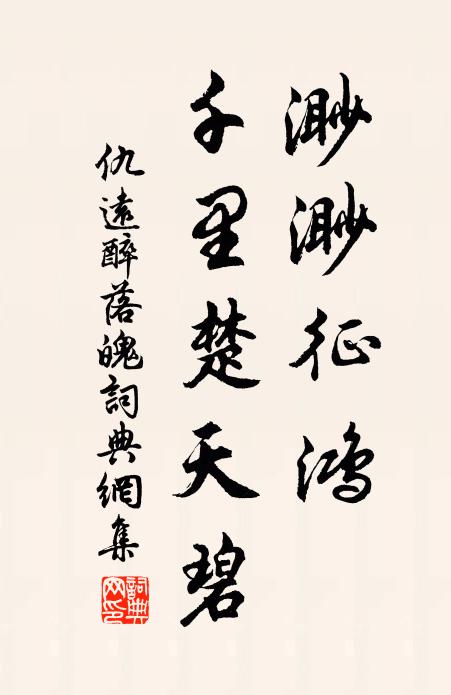 渺渺征鸿
千里楚天碧
仇遠醉落魄詞典網集
詞典网印